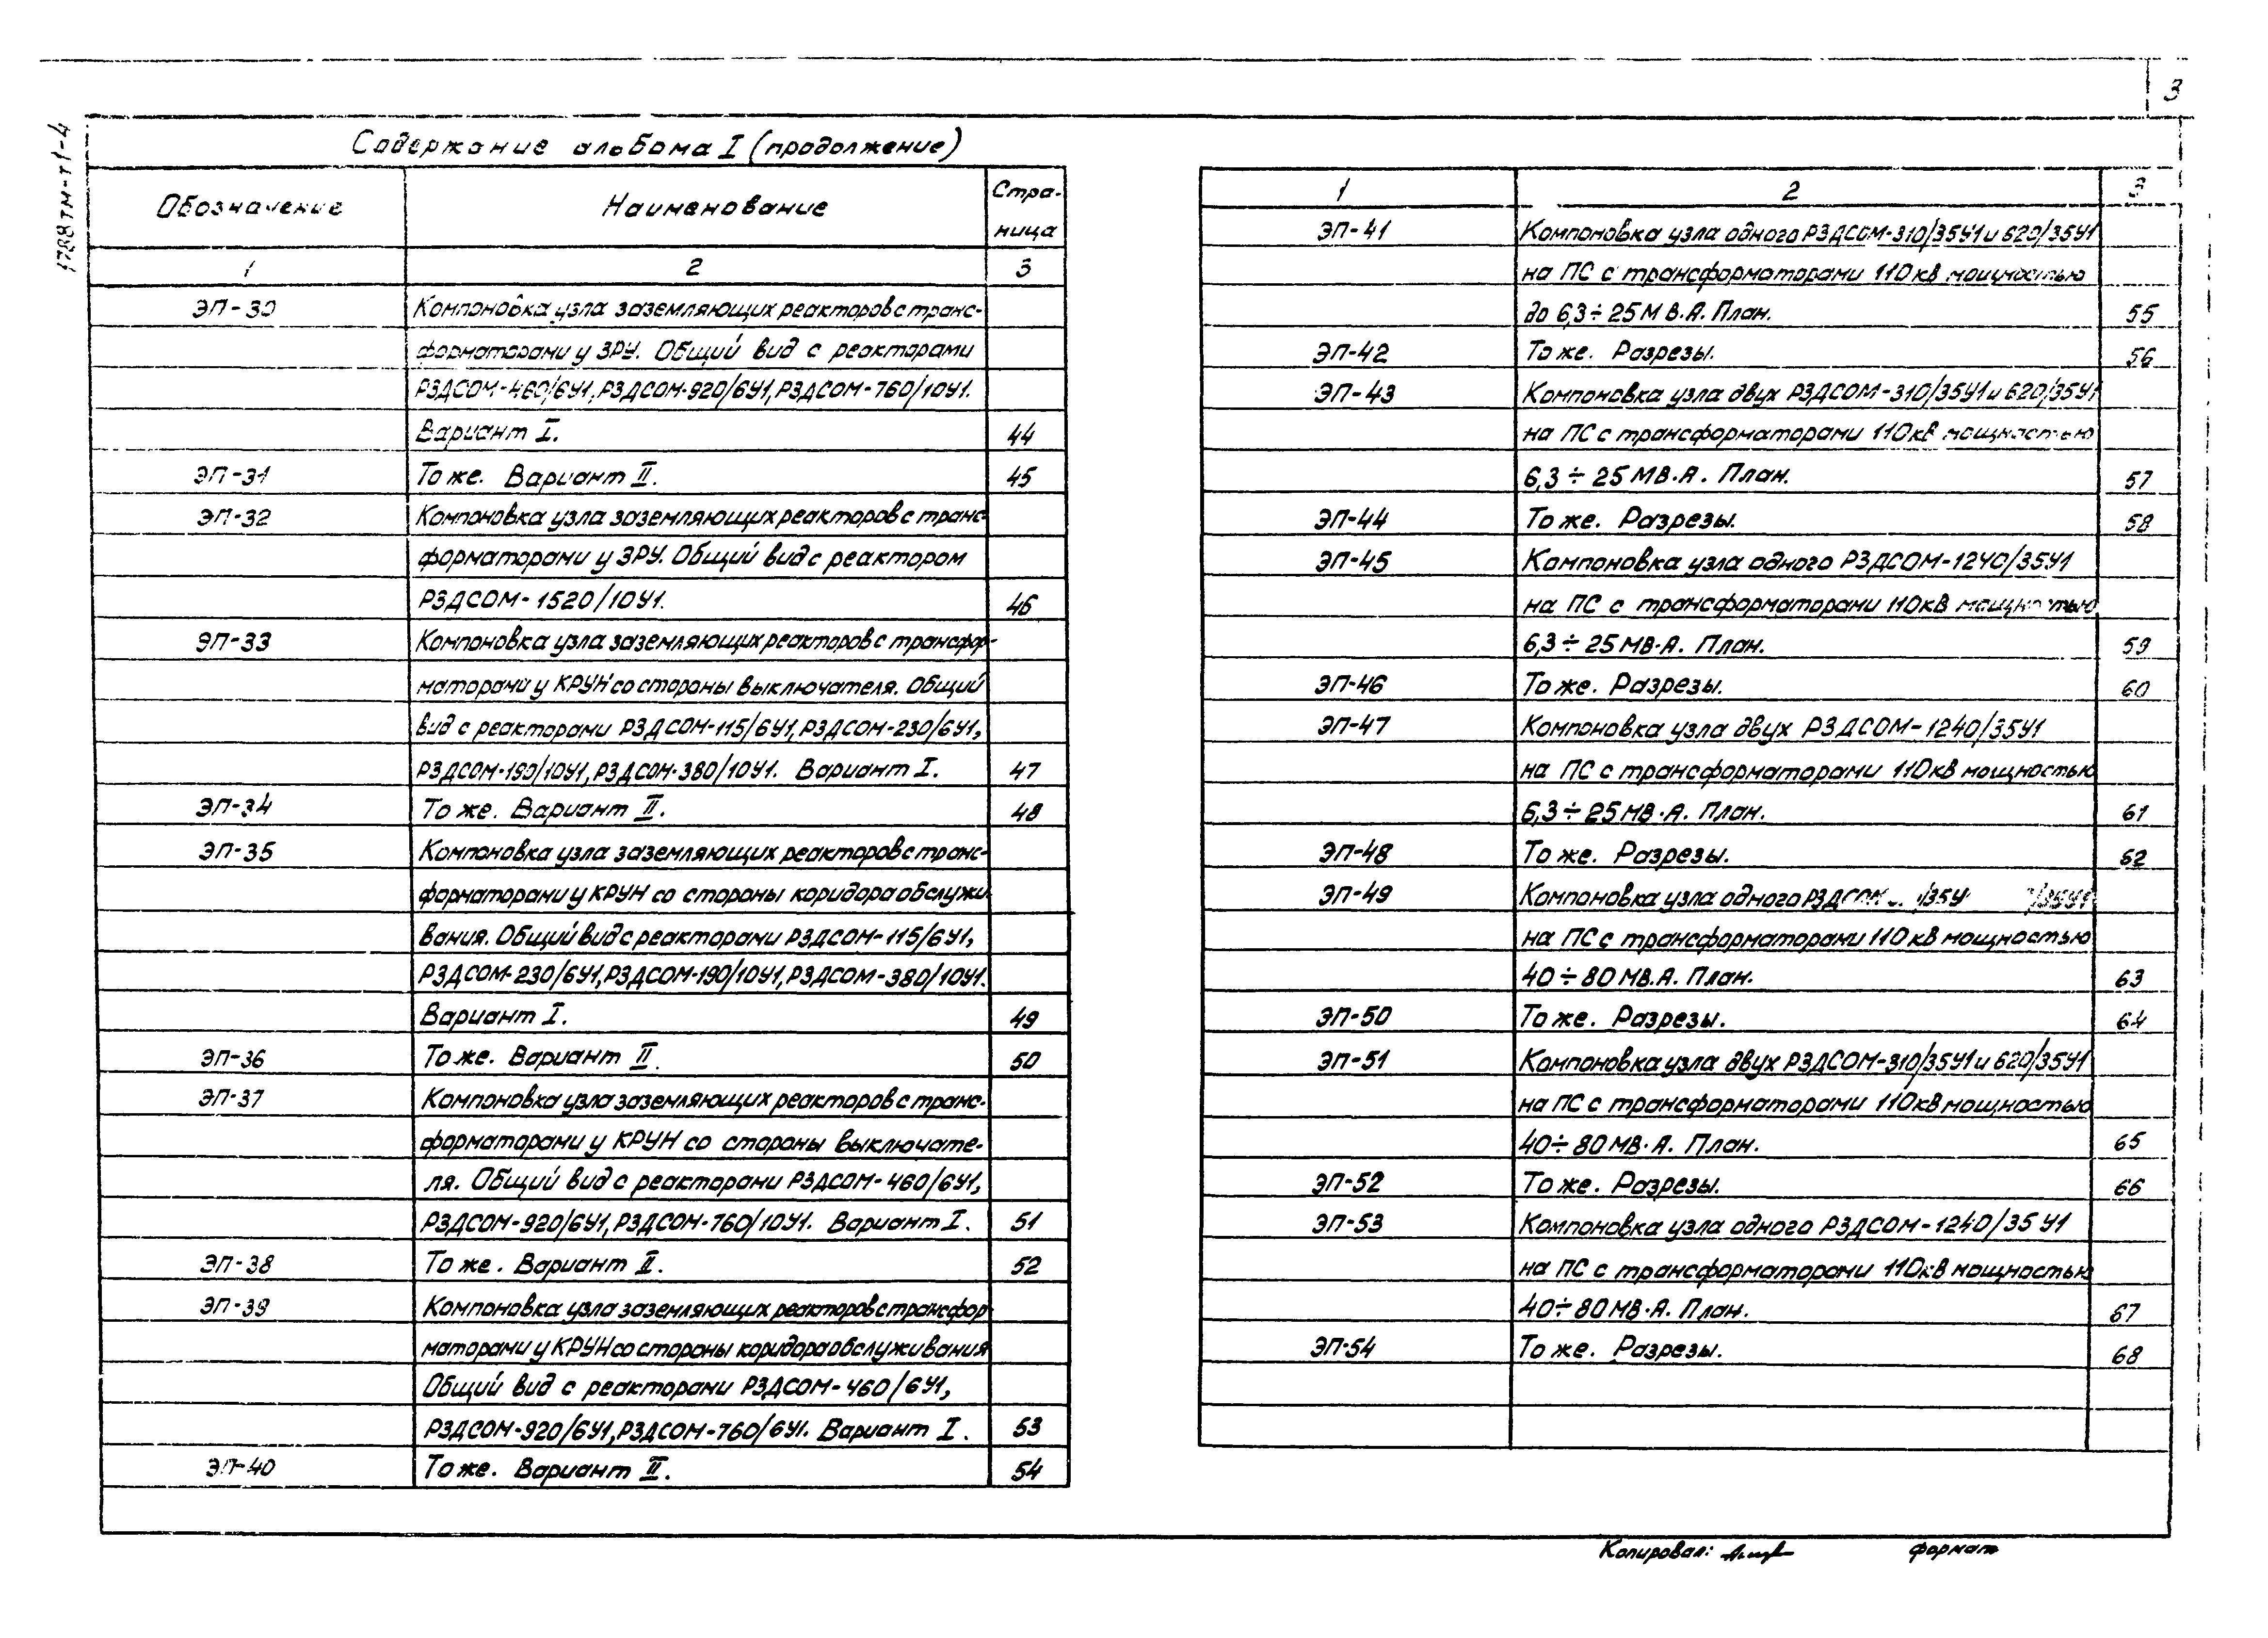 3
1788тм-т1-4
Содержание альбома I (продолжение)
Обозначение Наименование Стра-
ница
1 2 3
ЭП-30 Компоновка узла заземляющих реакторов с транс-
форматорами у ЗРУ. Общий вид с реакторами
РЗДСОМ-460/6У1, РЗДСОМ-920/6У1, РЗДСОМ-760/10У1.
Вариант I. 44
ЭП-31 То же. Вариант II. 45
ЭП-32 Компоновка узла заземляющих реакторов с транс-
форматорами у ЗРУ. Общий вид с реактором
РЗДСОМ-1520/10У1. 46
ЭП-33 Компоновка узла заземляющих реакторов с трансфор-
маторами у КРУН со стороны выключателя. Общий
вид с реакторами РЗДСОМ-115/6У1, РЗДСОМ-230/6У1,
РЗДСОМ-190/10У1, РЗДСОМ-380/10У1. Вариант I. 47
ЭП-34 То же. Вариант II. 48
ЭП-35 Компоновка узла заземляющих реакторов с транс-
форматорами у КРУН со стороны коридора обслужи-
вания. Общий вид с реакторами РЗДСОМ-115/6У1,
РЗДСОМ-230/6У1, РЗДСОМ-190/10У1, РЗДСОМ-380/10У1.
Вариант I. 49
ЭП-36 То же. Вариант II. 50
ЭП-37 Компоновка узла заземляющих реакторов с транс-
форматорами у КРУН со стороны выключате-
ля. Общий вид с реакторами РЗДСОМ-460/6У1,
РЗДСОМ-920/6У1, РЗДСОМ-760/10У1. Вариант I. 51
ЭП-38 То же. Вариант II. 52
ЭП-39 Компоновка узла заземляющих реакторов с трансфор-
маторами у КРУН со стороны коридора обслуживания
Общий вид с реакторами РЗДСОМ-460/6У1,
РЗДСОМ-920/6У1, РЗДСОМ-760/6У1. Вариант I. 53
ЭП-40 То же. Вариант II. 54
1 2 3
ЭП-41 Компоновка узла одного РЗДСОМ-310/35У1 и 620/35У1
на ПС с трансформаторами 110кВ мощностью
до 6,3÷25 М В.А. План. 55
ЭП-42 То же. Разрезы. 56
ЭП-43 Компоновка узла двух РЗДСОМ-310/35У1 и 620/35У1
на ПС с трансформаторами 110кВ мощностью
6,3÷25 МВ·А. План. 57
ЭП-44 То же. Разрезы. 58
ЭП-45 Компоновка узла одного РЗДСОМ-1240/35У1
на ПС с трансформаторами 110кВ мощностью
6,3÷25 МВ·А. План. 59
ЭП-46 То же. Разрезы. 60
ЭП-47 Компоновка узла двух РЗДСОМ-1240/35У1
на ПС с трансформаторами 110кВ мощностью
6,3÷25 МВ·А. План. 61
ЭП-48 То же. Разрезы. 62
ЭП-49 Компоновка узла одного РЗДСОМ /35У /35У1
на ПС с трансформаторами 110кВ мощностью
40÷80 МВ.А. План. 63
ЭП-50 То же. Разрезы. 64
ЭП-51 Компоновка узла двух РЗДСОМ-310/35У1 и 620/35У1
на ПС с трансформаторами 110кВ мощностью
40÷80 МВ·А. План. 65
ЭП-52 То же. Разрезы. 66
ЭП-53 Компоновка узла одного РЗДСОМ-1240/35У1
на ПС с трансформаторами 110кВ мощностью
40÷80 МВ·А. План. 67
ЭП-54 То же. Разрезы. 68
Копировал: формат